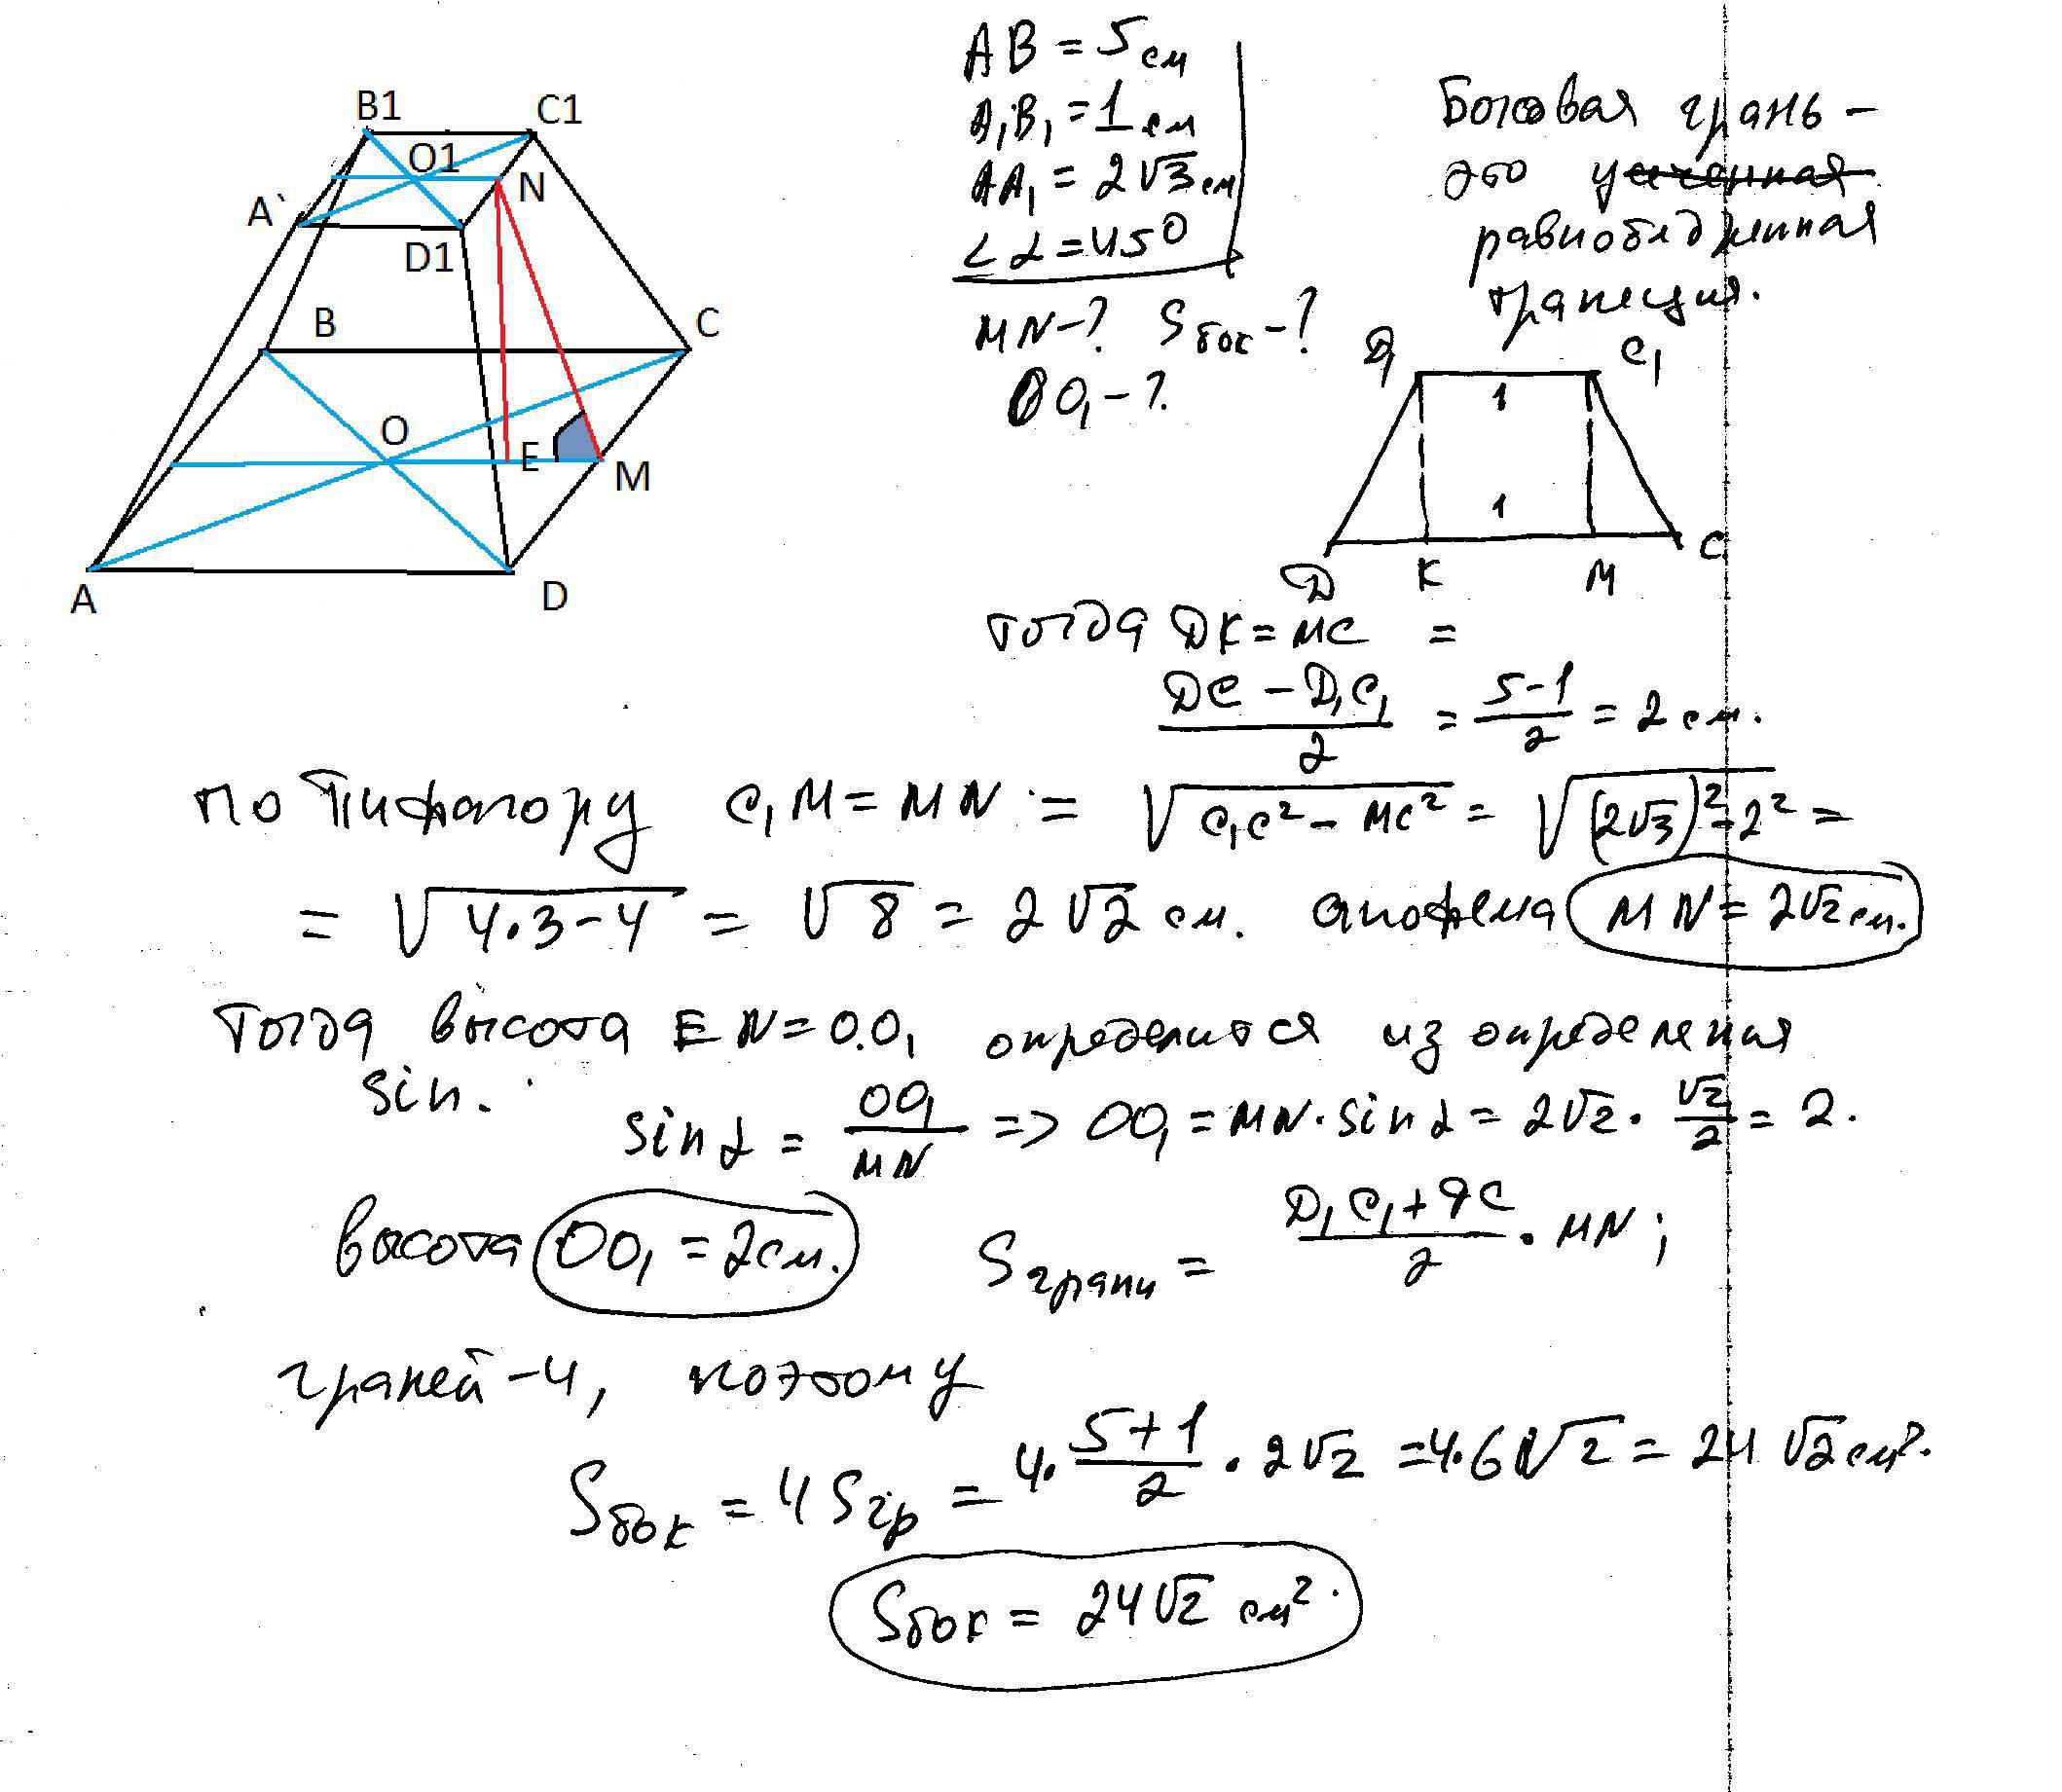 B1
C1
O1
N
A`
D1
B
C
O
E
M
A
D
AB = 5 см
A₁B₁ = 1 см
AA₁ = 2√3 см
∠α = 45°
MN - ? Sбок - ?
OO₁ - ?
Боковая грань -
это усеченная
равнобедренная
трапеция.
Д₁ C₁
1
1
Д К М С
тогда ДК = МС =
(ДС - Д₁С₁)/2 = (5-1)/2 = 2 см.
по Пифагору C₁M = MN = √(C₁C² - MC²) = √((2√3)² - 2²) =
= √(4·3-4) = √8 = 2√2 см. апофема MN = 2√2 см.
Тогда высота EN = OO₁ определится из определения
sin.
sin α = OO₁/MN => OO₁ = MN · sin α = 2√2 · √2/2 = 2.
высота OO₁ = 2 см. Sграни = (Д₁С₁ + ДС)/2 · MN;
граней - 4, поэтому
Sбок = 4 Sгр = 4 · (5+1)/2 · 2√2 = 4·6√2 = 24√2 см².
Sбок = 24√2 см².